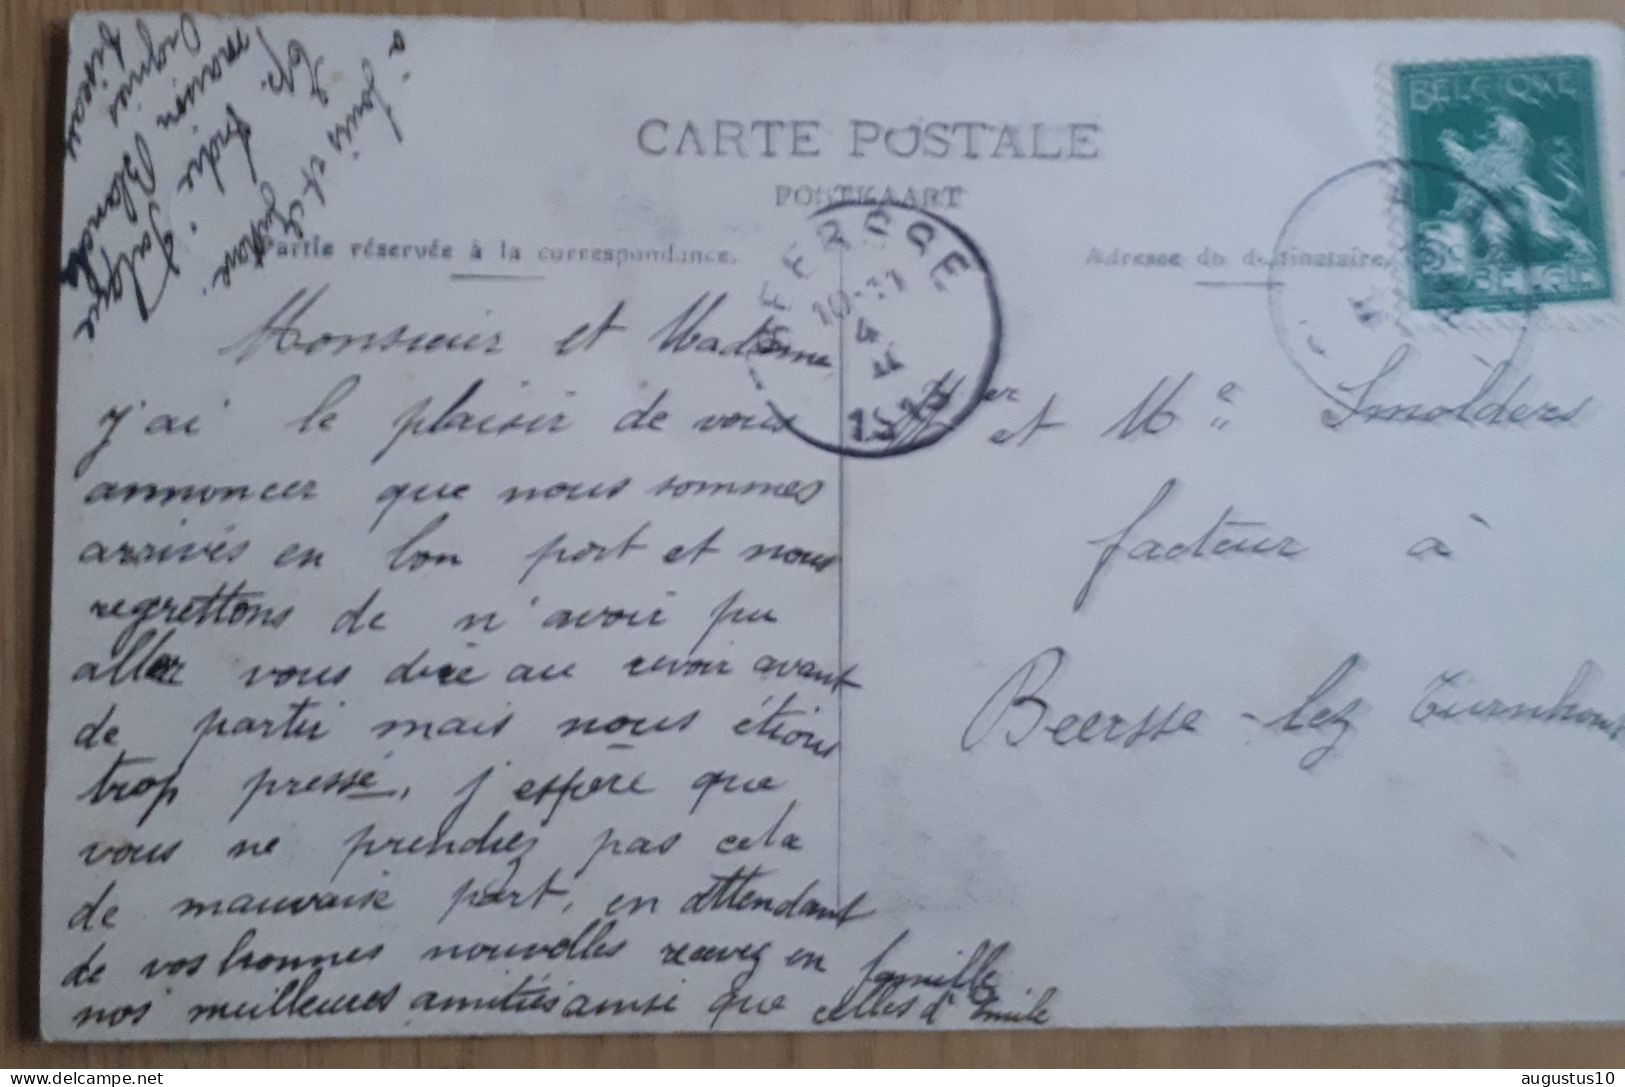 CARTE POSTALE
POSTKAART
Partie réservée à la correspondance.
Adresse du destinataire.
BELGIQUE
BELGIË
10-11
4
1913
à Louis et Gustave.
André.
maison Blanche
Monsieur et Madame
J'ai le plaisir de vous
annoncer que nous sommes
arrivés en bon port et nous
regrettons de n'avoir pu
aller vous dire au revoir avant
de partir mais nous étions
trop pressé, j'espère que
vous ne prendrez pas cela
de mauvaise part, en attendant
de vos bonnes nouvelles recevez en famille
nos meilleures amitiés ainsi que celles d'Emile
et Me Smolders
facteur à
Beersse-lez Turnhout
augustus10